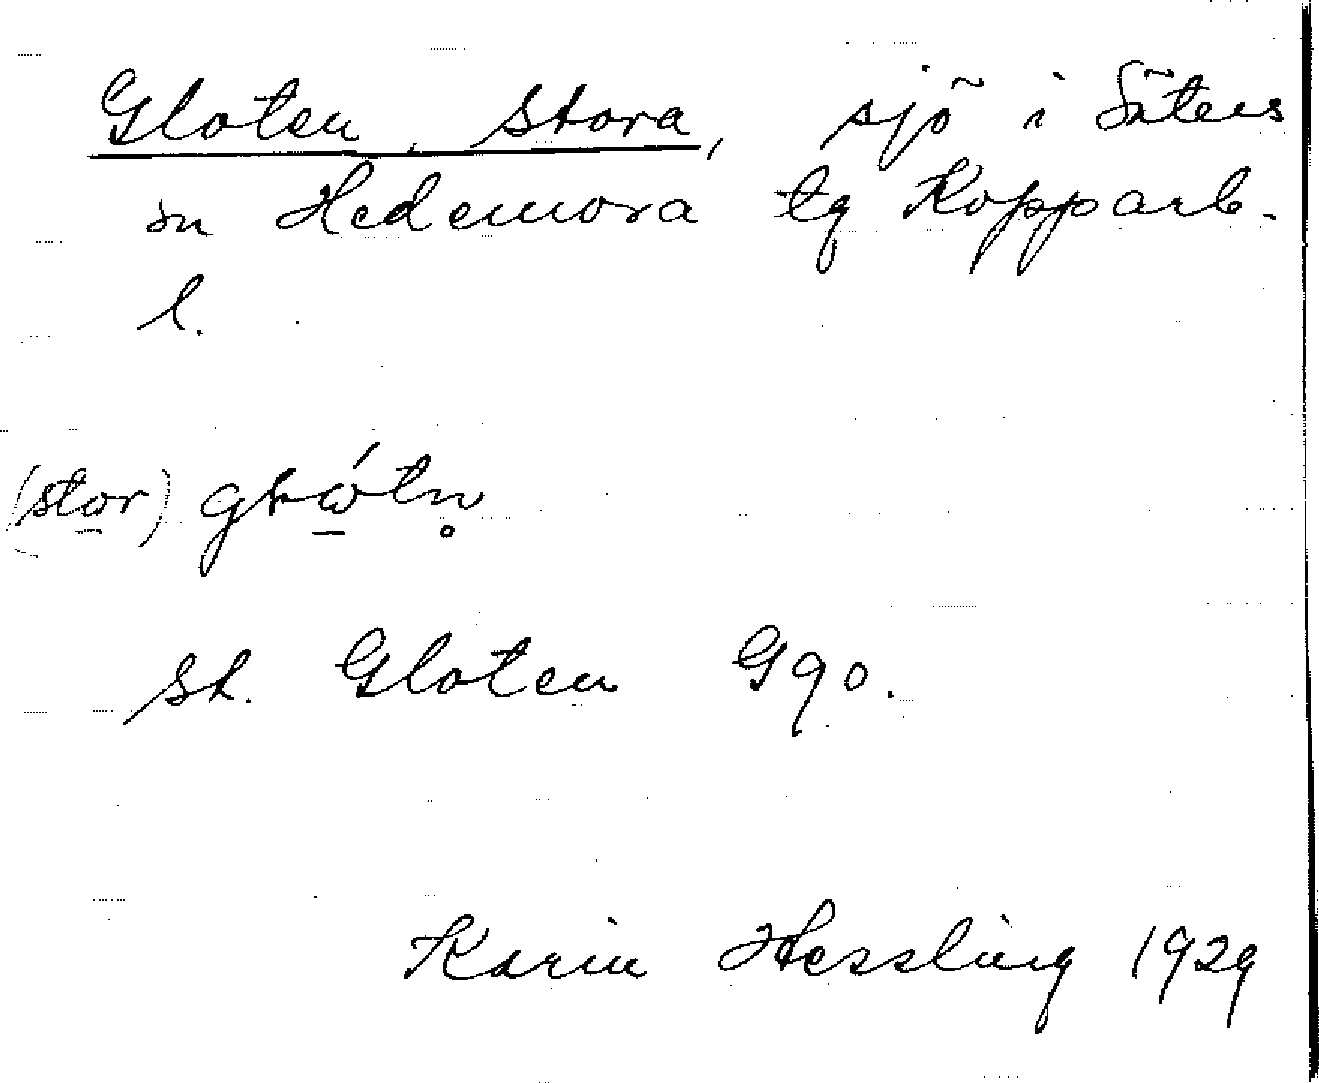 Gloten, Stora, sjö i Säters
sn Hedemora tg Kopparb.
l.
(stor)
St. Gloten G90.
Karin Hessling 1929